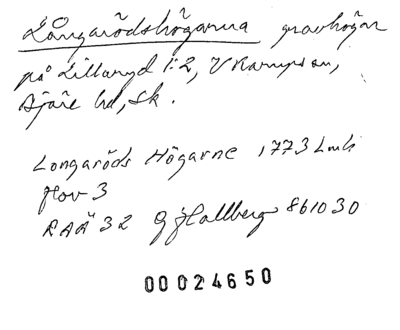 Långarödshögarna gravhögar
på Lillaryd 1:2, V Karups sn,
Bjäre hd, Sk.
Longaröds Högarne 1773 Lmk
Hov 3
RAÄ 32 G Hallberg 861030
00024650